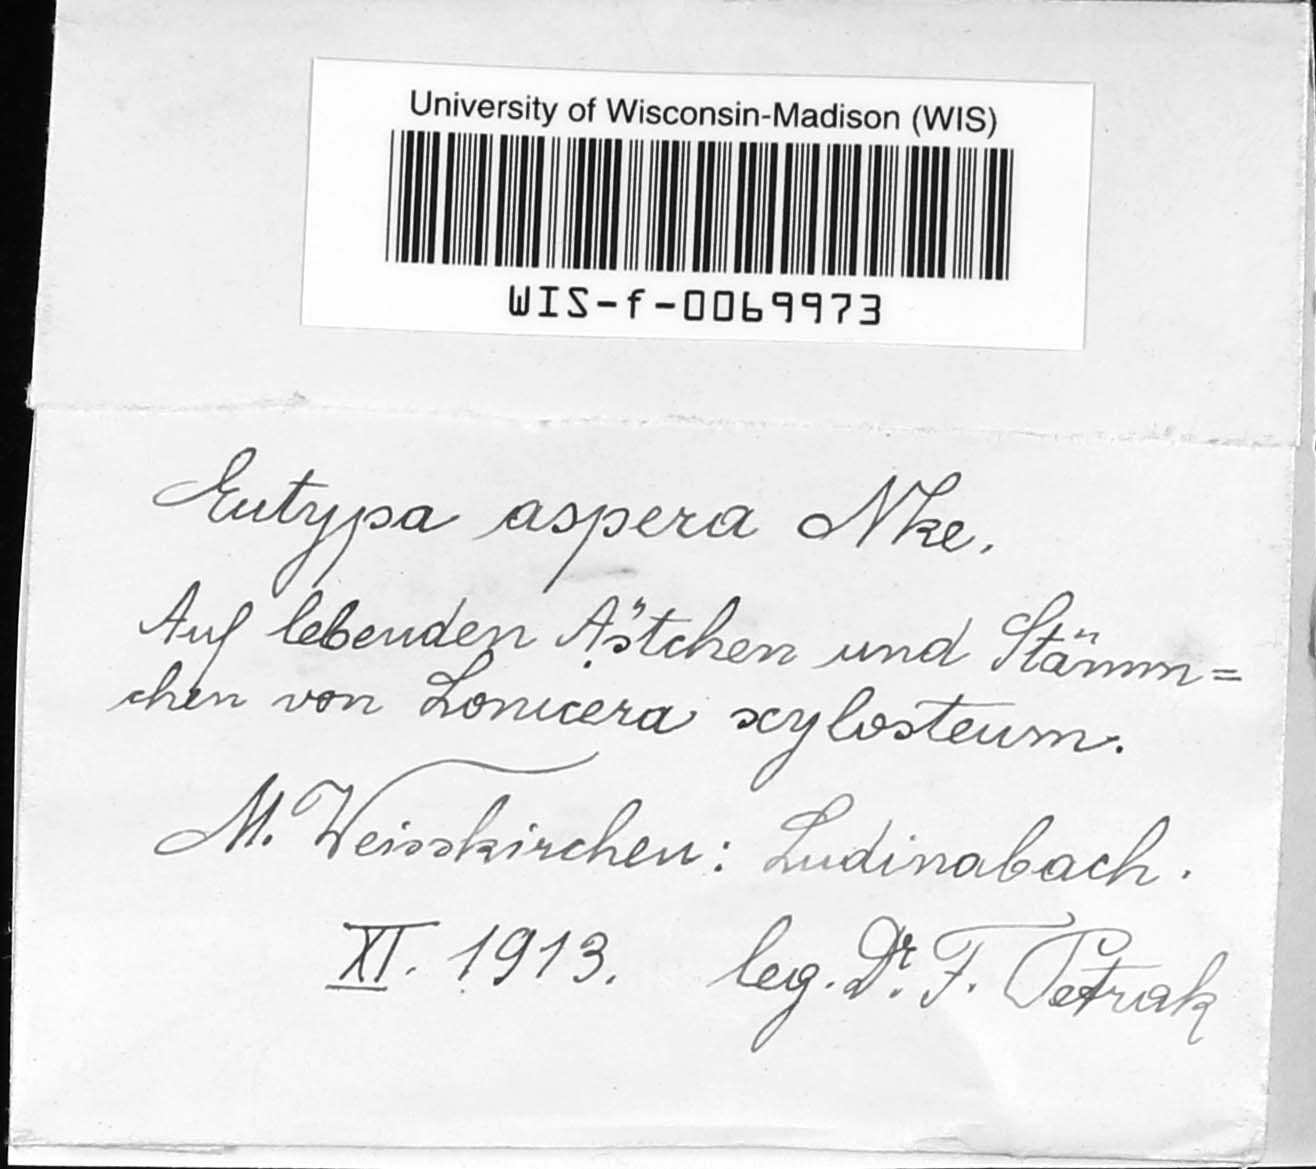 University of Wisconsin-Madison (WIS)
WIS-f-0069973
Eutypa aspera Nke.
Auf lebenden Ästchen und Stämm=
chen von Lonicera xylosteum.
M. Weisskirchen: Ludinabach.
XI. 1913. leg. Dr. F. Petrak